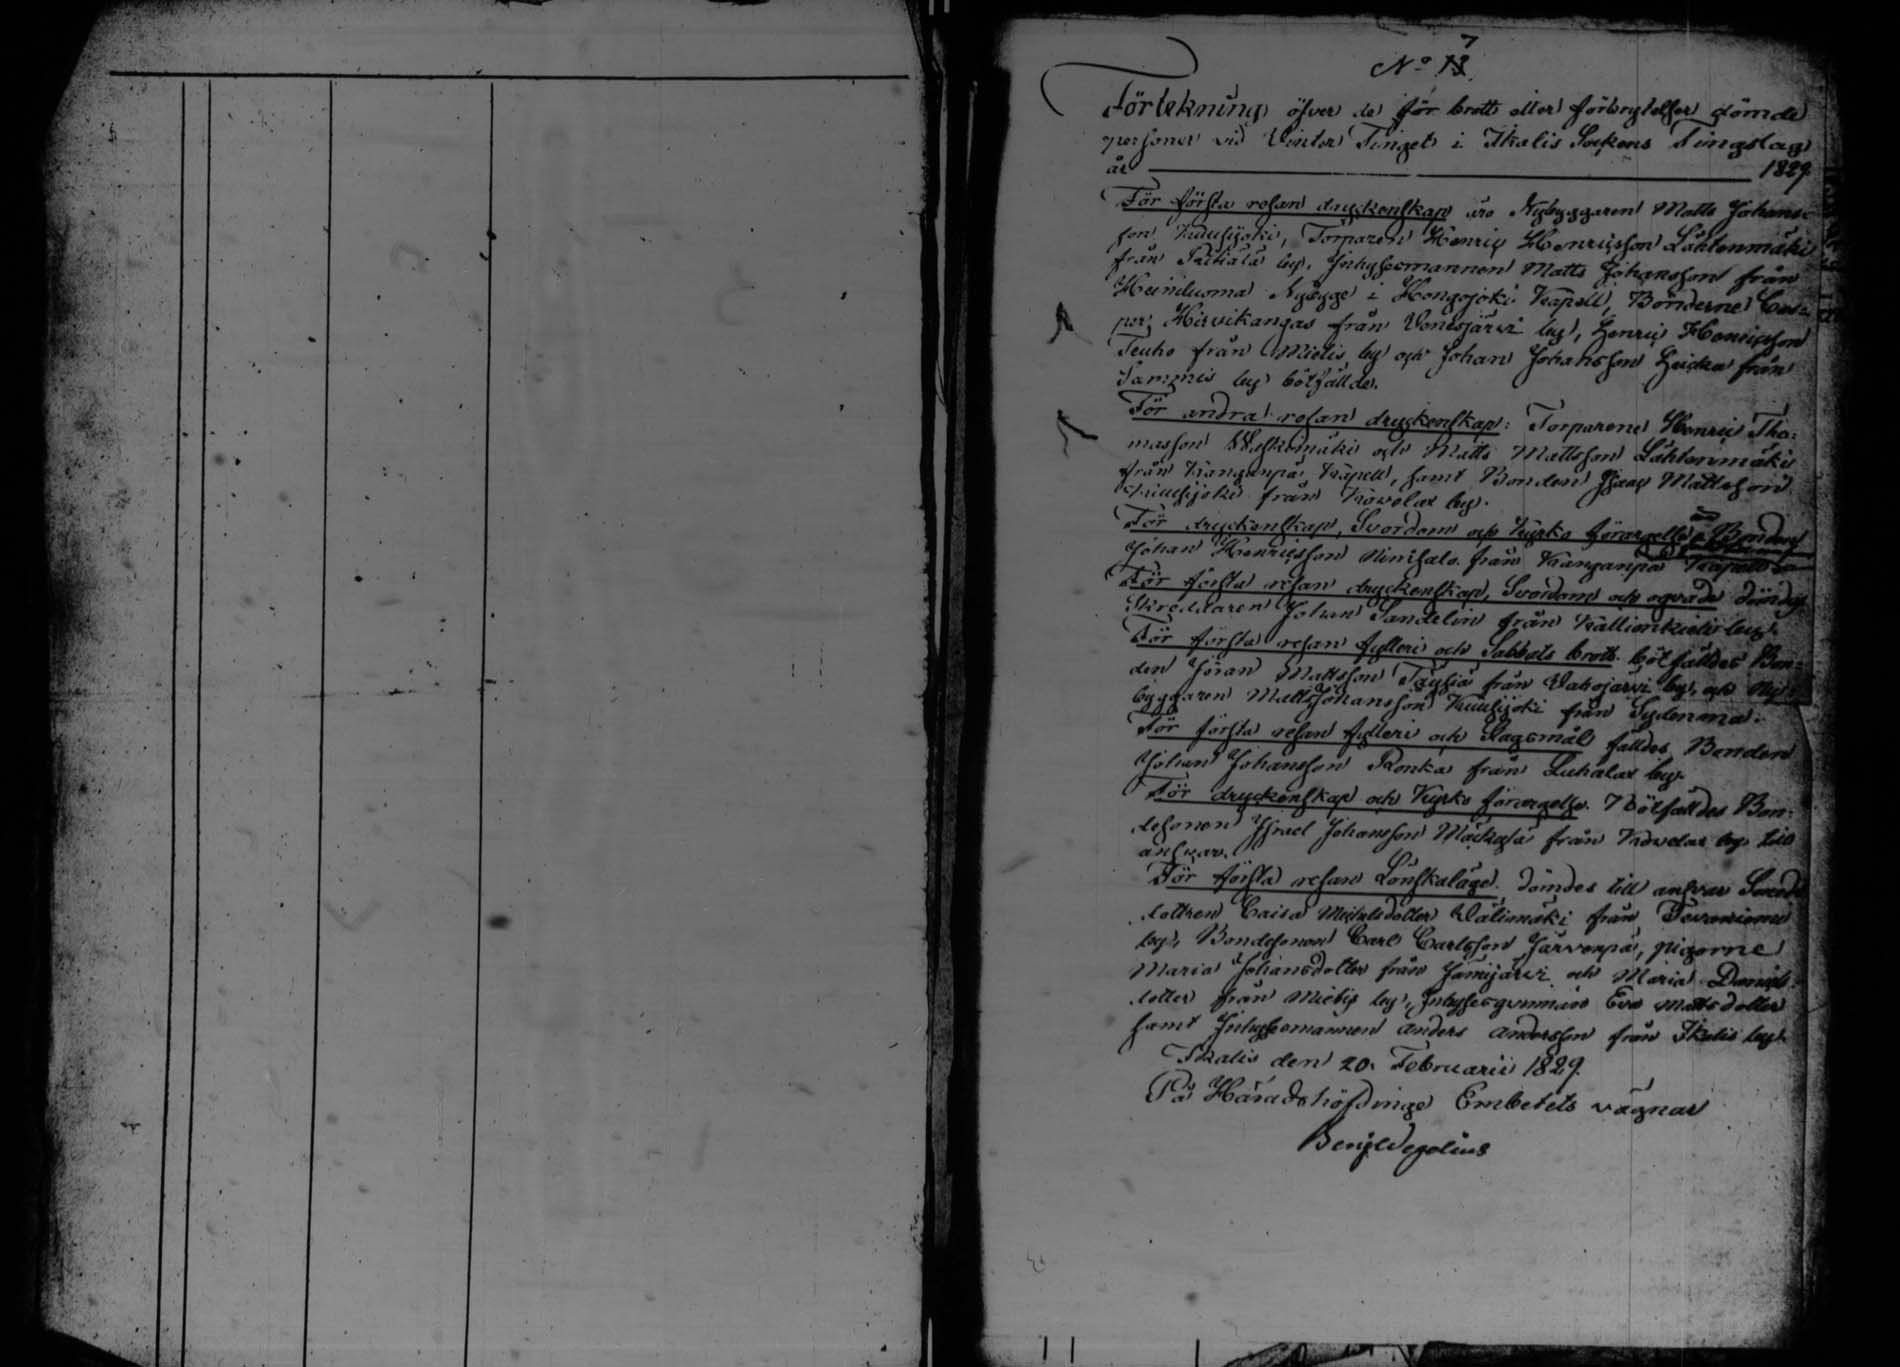 7
No 13
Förtekning öfver de för brott eller förbrytelser dömde
personer vid Vinter Tinget i Ikalis Sockens Tingslag
år 1829
För första resan dryckenskap äro Nybyggaren Matts Johans-
son Kuusijoki, Torparen Henric Henricsson Lähtenmäki
från by, Inhysesmannen Matts Johansson från
Heiniluoma Nybygge i Hongojoki Kapell, Bönderne Cas-
per Hirvikangas från Venesjärvi by, Henric Henricsson
Teuho från Mietis by och Johan Johansson från
Sammis by bötfällde.
För andra resan dryckenskap: Torparene Henric Tho-
masson och Matts Mattsson Lähtenmäki
från Kanganpä Kapell, samt Bonden Isaac Mattsson
från Kovelax by.
För dryckenskap, Svordom och Kyrko förargelse Bonden
Johan Henricsson Niinisalo från Kanganpä Kapell
För första resan dryckenskap, Svordom och oqväde dömdes
Skreddaren Johan Sandelin från Kallionkieli by.
För första resan fylleri och Sabbats brott bötfälldes Bon-
den Jöran Mattsson från Vahojärvi by, och Ny-
byggaren Matts Johansson Kuusijoki från Sydenma.
För första resan fylleri och Slagsmål fälldes Bonden
Johan Johansson Ronka från Luhalax by.
För dryckenskap och Kyrko förargelse. Bötfälldes Bon-
desonen Israel Johansson från Kovelax by till
ansvar.
För första resan Lönskaläge. dömdes till ansvar
dottren Caisa Michelsdotter Välimäki från
by, Bondesonen Carl Carlsson Järvenpä, pigorne
Maria Johansdotter från Jämijärvi och Maria Daniels-
dotter från Mietis by, Inhysesqvinnan Eva Mattsdotter
samt Inhysesmannen Anders Andersson från Ikalis by.
Ikalis den 20. Februarii 1829.
På Häradshöfdinge Embetets vägnar